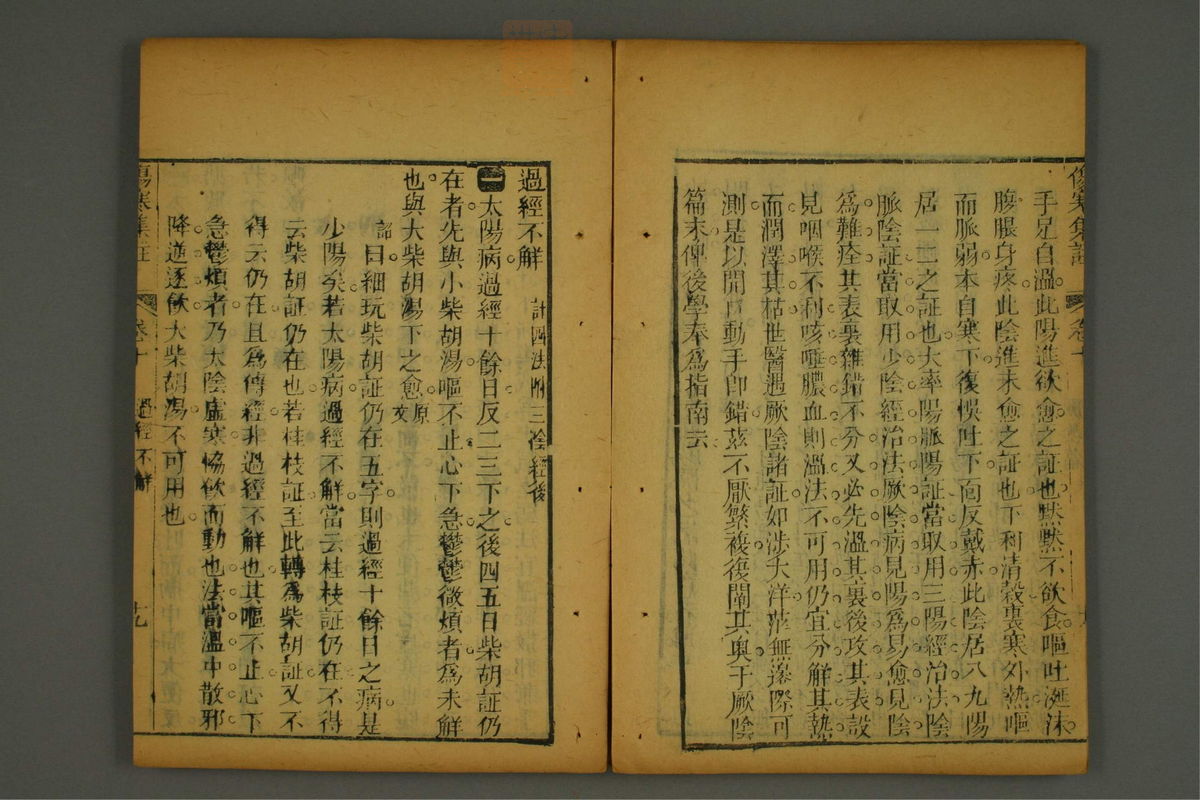 手足自溫此陽進欲愈之証也默默不飲食嘔吐涎沫
腹脹身疼此陰進未愈之証也下利清穀裏寒外熱嘔
而脈弱本自寒下復悞吐下面反戴赤此陰居八九陽
居一二之証也大率陽脈陽証當取用三陽經治法陰
脈陰証當取用少陰經治法厥陰病見陽爲易愈見陰
爲難痊其表裏雜錯不分又必先溫其裏後攻其表設
見咽喉不利咳唾膿血則溫法不可用仍宜分解其熱
而潤澤其枯世醫遇厥陰諸証如涉大洋茫無際可
測是以開口動手卽錯茲不厭繁複復闡其奧于厥陰
篇末俾後學奉爲指南云
過經不解 計四法附三陰經後
一太陽病過經十餘日反二三下之後四五日柴胡証仍
在者先與小柴胡湯嘔不止心下急鬱鬱微煩者爲未解
也與大柴胡湯下之愈 原文
詺曰細玩柴胡証仍在五字則過經十餘日之病是
少陽矣若太陽病過經不解當云桂枝証仍在不得
云柴胡証仍在也若桂枝証至此轉爲柴胡証又不
得云仍在且爲傳經非過經不解也其嘔不止心下
急鬱煩者乃太陰虛寒恊飲而動也法當溫中散邪
降逆逐飲大柴胡湯不可用也
傷寒集註 卷十 過經不解 十九